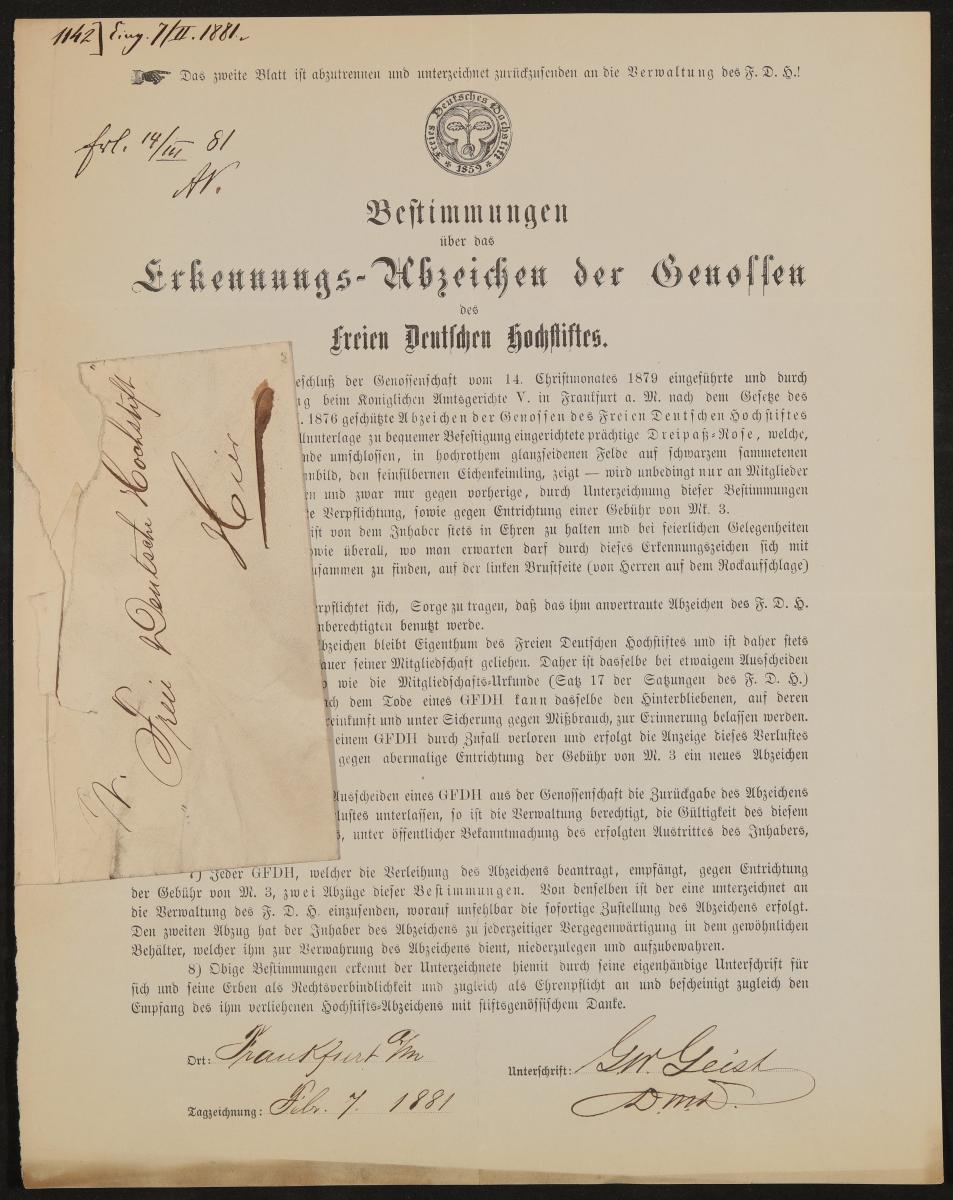 1142] Eing. 7/II. 1881.
Das zweite Blatt ist abzutrennen und unterzeichnet zurückzusenden an die Verwaltung des F. D. H.!
Freies Deutsches Hochstift
* 1859 *
erl. 14/III 81
Bestimmungen
über das
Erkennungs-Abzeichen der Genossen
des
Freien Deutschen Hochstiftes.
eschluß der Genossenschaft vom 14. Christmonates 1879 eingeführte und durch
g beim Koniglichen Amtsgerichte V. in Frankfurt a. M. nach dem Gesetze des
. 1876 geschützte Abzeichen der Genossen des Freien Deutschen Hochstiftes
llunterlage zu bequemer Befestigung eingerichtete prächtige Dreipaß-Rose, welche,
nde umschlossen, in hochrothem glanzseidenen Felde auf schwarzem sammetenen
nbild, den feinsilbernen Eichenkeimling, zeigt — wird unbedingt nur an Mitglieder
en und zwar nur gegen vorherige, durch Unterzeichnung dieser Bestimmungen
te Verpflichtung, sowie gegen Entrichtung einer Gebühr von Mk. 3.
ist von dem Inhaber stets in Ehren zu halten und bei feierlichen Gelegenheiten
owie überall, wo man erwarten darf durch dieses Erkennungszeichen sich mit
usammen zu finden, auf der linken Brustseite (von Herren auf dem Rockaufschlage)
erpflichtet sich, Sorge zu tragen, daß das ihm anvertraute Abzeichen des F. D. H.
nberechtigten benutzt werde.
bzeichen bleibt Eigenthum des Freien Deutschen Hochstiftes und ist daher stets
auer seiner Mitgliedschaft geliehen. Daher ist dasselbe bei etwaigem Ausscheiden
o wie die Mitgliedschafts-Urkunde (Satz 17 der Satzungen des F. D. H.)
ch dem Tode eines GFDH kann dasselbe den Hinterbliebenen, auf deren
reinkunft und unter Sicherung gegen Mißbrauch, zur Erinnerung belassen werden.
einem GFDH durch Zufall verloren und erfolgt die Anzeige dieses Verlustes
gegen abermalige Entrichtung der Gebühr von M. 3 ein neues Abzeichen
Ausscheiden eines GFDH aus der Genossenschaft die Zurückgabe des Abzeichens
lustes unterlassen, so ist die Verwaltung berechtigt, die Gültigkeit des diesem
s, unter öffentlicher Bekanntmachung des erfolgten Austrittes des Inhabers,
7) Jeder GFDH, welcher die Verleihung des Abzeichens beantragt, empfängt, gegen Entrichtung
der Gebühr von M. 3, zwei Abzüge dieser Bestimmungen. Von denselben ist der eine unterzeichnet an
die Verwaltung des F. D. H. einzusenden, worauf unfehlbar die sofortige Zustellung des Abzeichens erfolgt.
Den zweiten Abzug hat der Inhaber des Abzeichens zu jederzeitiger Vergegenwärtigung in dem gewöhnlichen
Behälter, welcher ihm zur Verwahrung des Abzeichens dient, niederzulegen und aufzubewahren.
8) Obige Bestimmungen erkennt der Unterzeichnete hiemit durch seine eigenhändige Unterschrift für
sich und seine Erben als Rechtsverbindlichkeit und zugleich als Ehrenpflicht an und bescheinigt zugleich den
Empfang des ihm verliehenen Hochstifts-Abzeichens mit stiftsgenössischem Danke.
Ort: Frankfurt a/m
Unterschrift: Gw. Geist
Tagzeichnung: Febr. 7. 1881
Frei Deutsche Hochstift
Hier